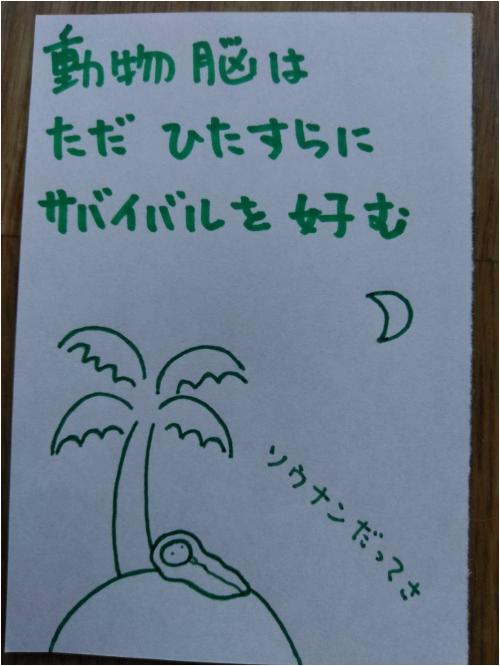 動物脳は
ただ ひたすらに
サバイバルを 好む
ソウナンだってさ